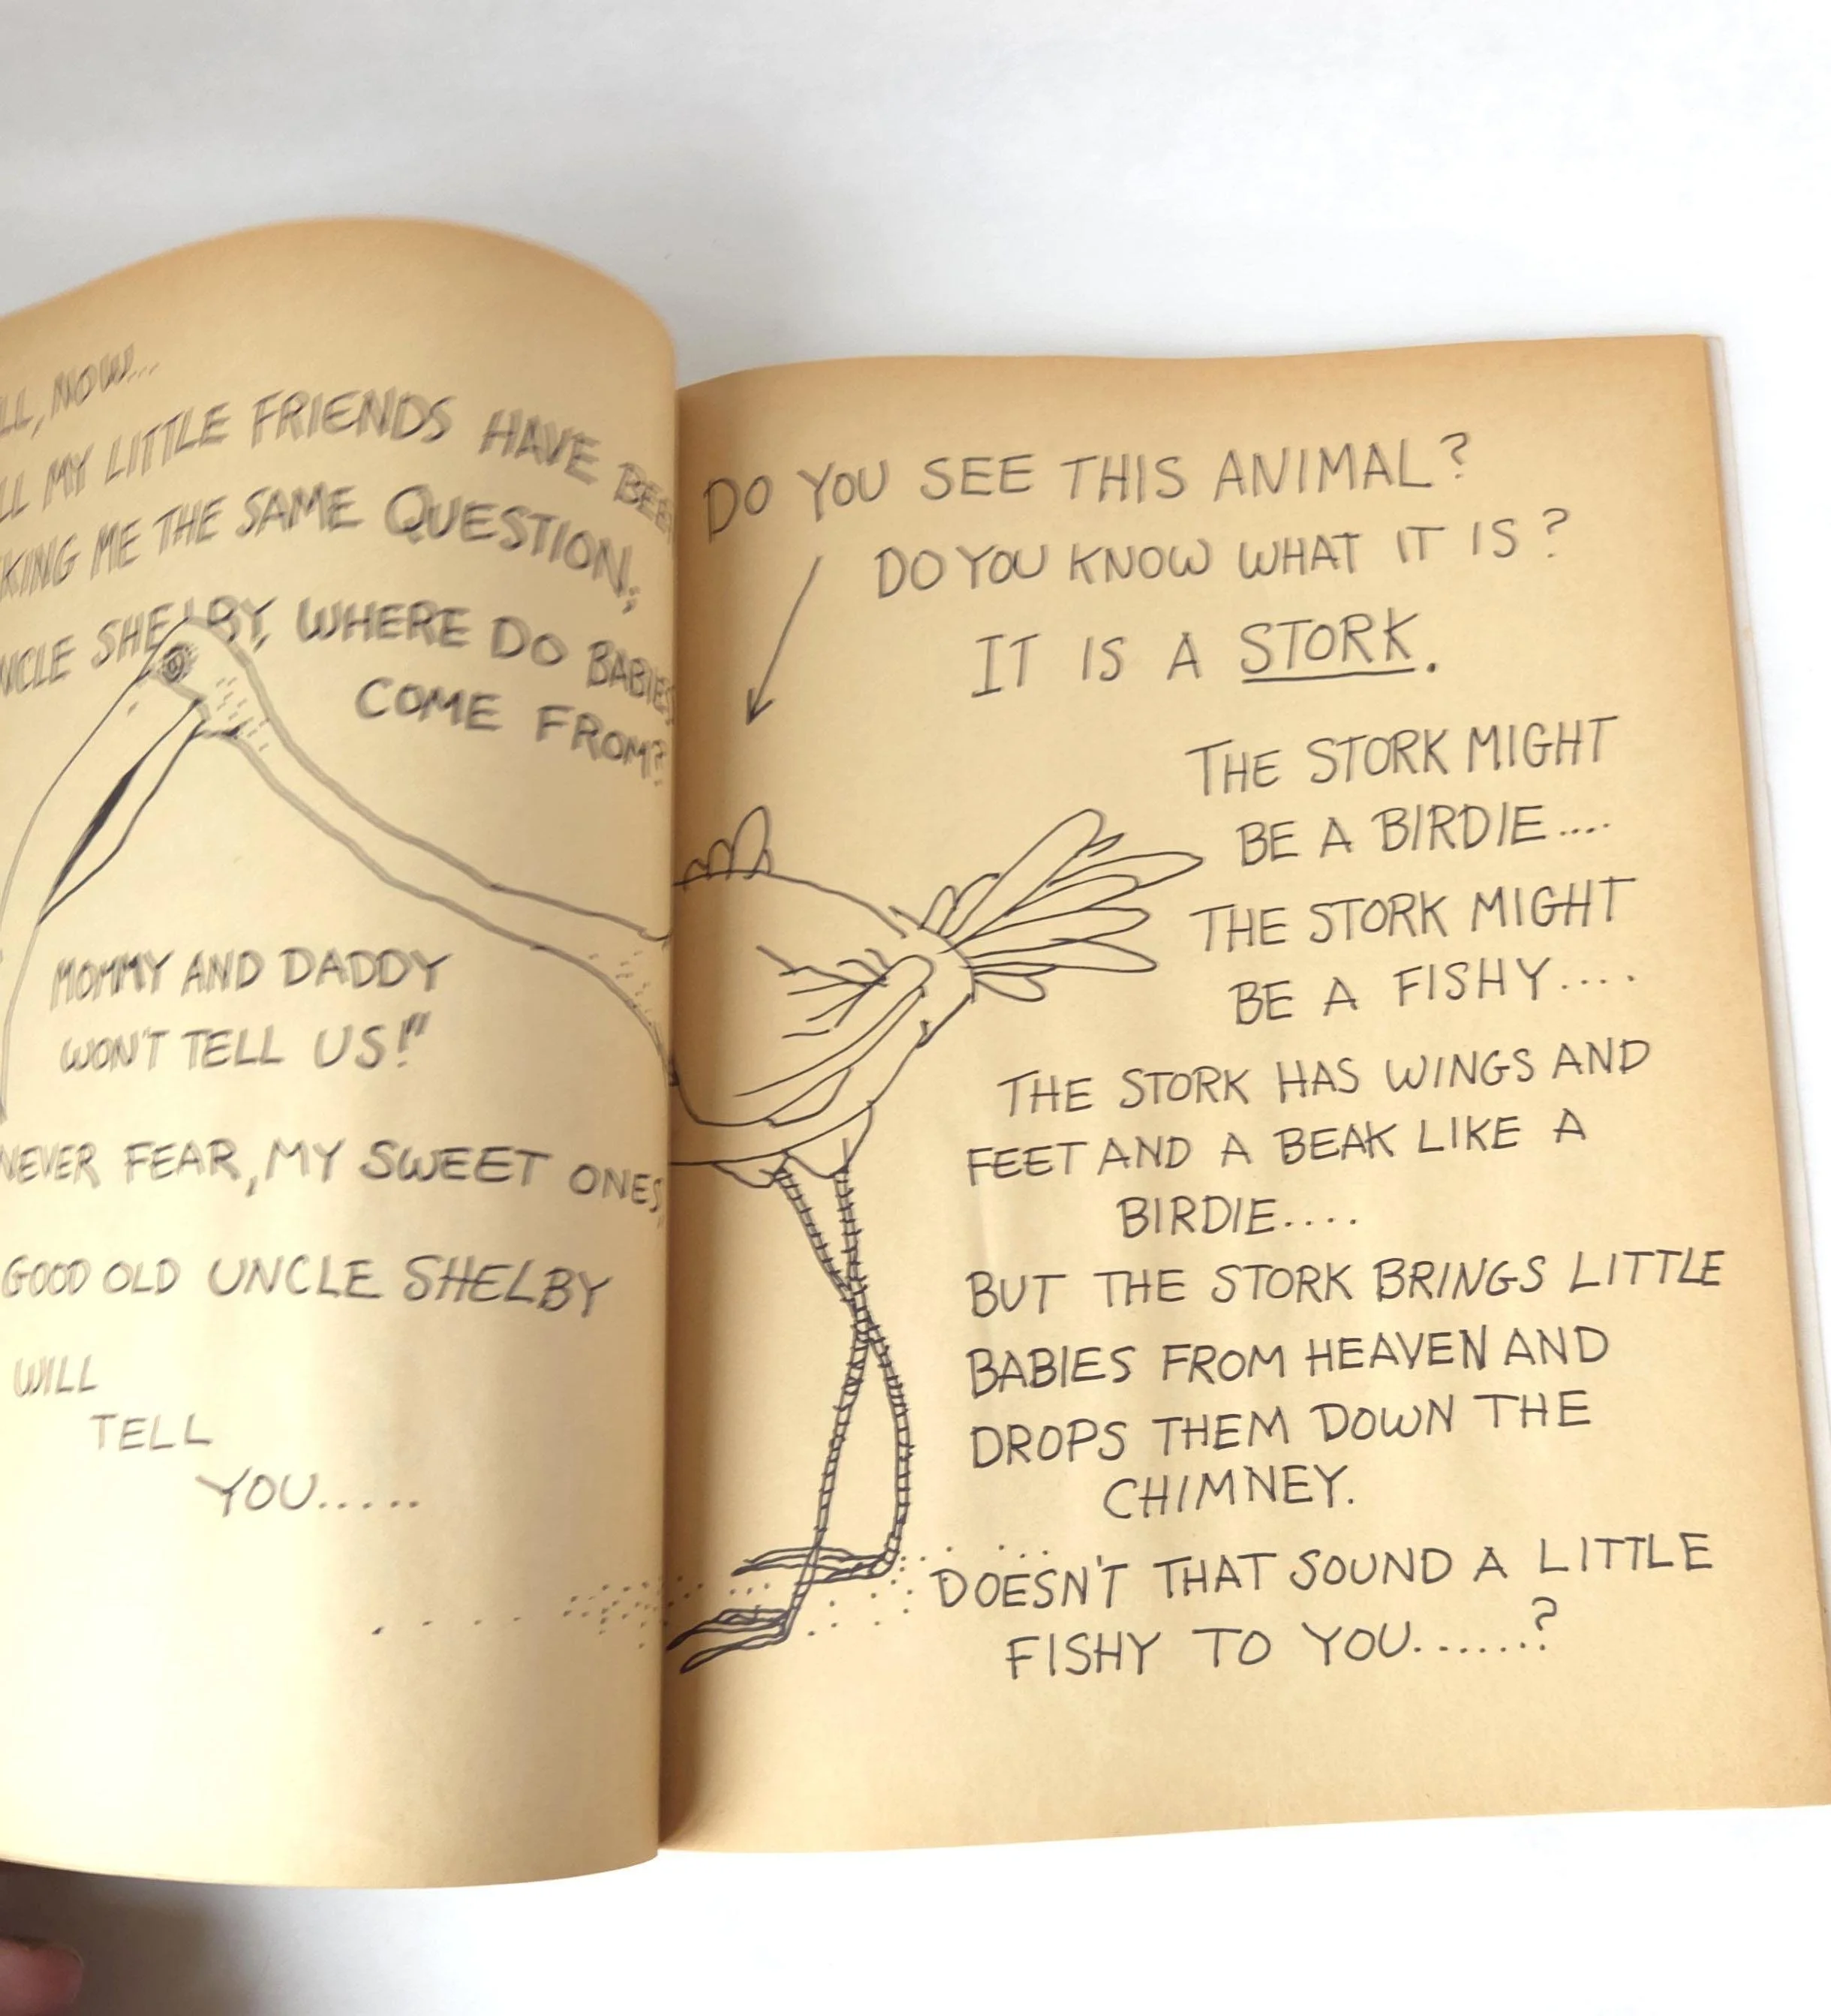 LL, NOW...
LL MY LITTLE FRIENDS HAVE BEE
KING ME THE SAME QUESTION;
NCLE SHELBY, WHERE DO BABIES
COME FROM?
MOMMY AND DADDY
WON'T TELL US!"
NEVER FEAR, MY SWEET ONES,
GOOD OLD UNCLE SHELBY
WILL
TELL
YOU.....
DO YOU SEE THIS ANIMAL?
DO YOU KNOW WHAT IT IS?
IT IS A STORK.
THE STORK MIGHT
BE A BIRDIE....
THE STORK MIGHT
BE A FISHY....
THE STORK HAS WINGS AND
FEET AND A BEAK LIKE A
BIRDIE....
BUT THE STORK BRINGS LITTLE
BABIES FROM HEAVEN AND
DROPS THEM DOWN THE
CHIMNEY.
DOESN'T THAT SOUND A LITTLE
FISHY TO YOU......?